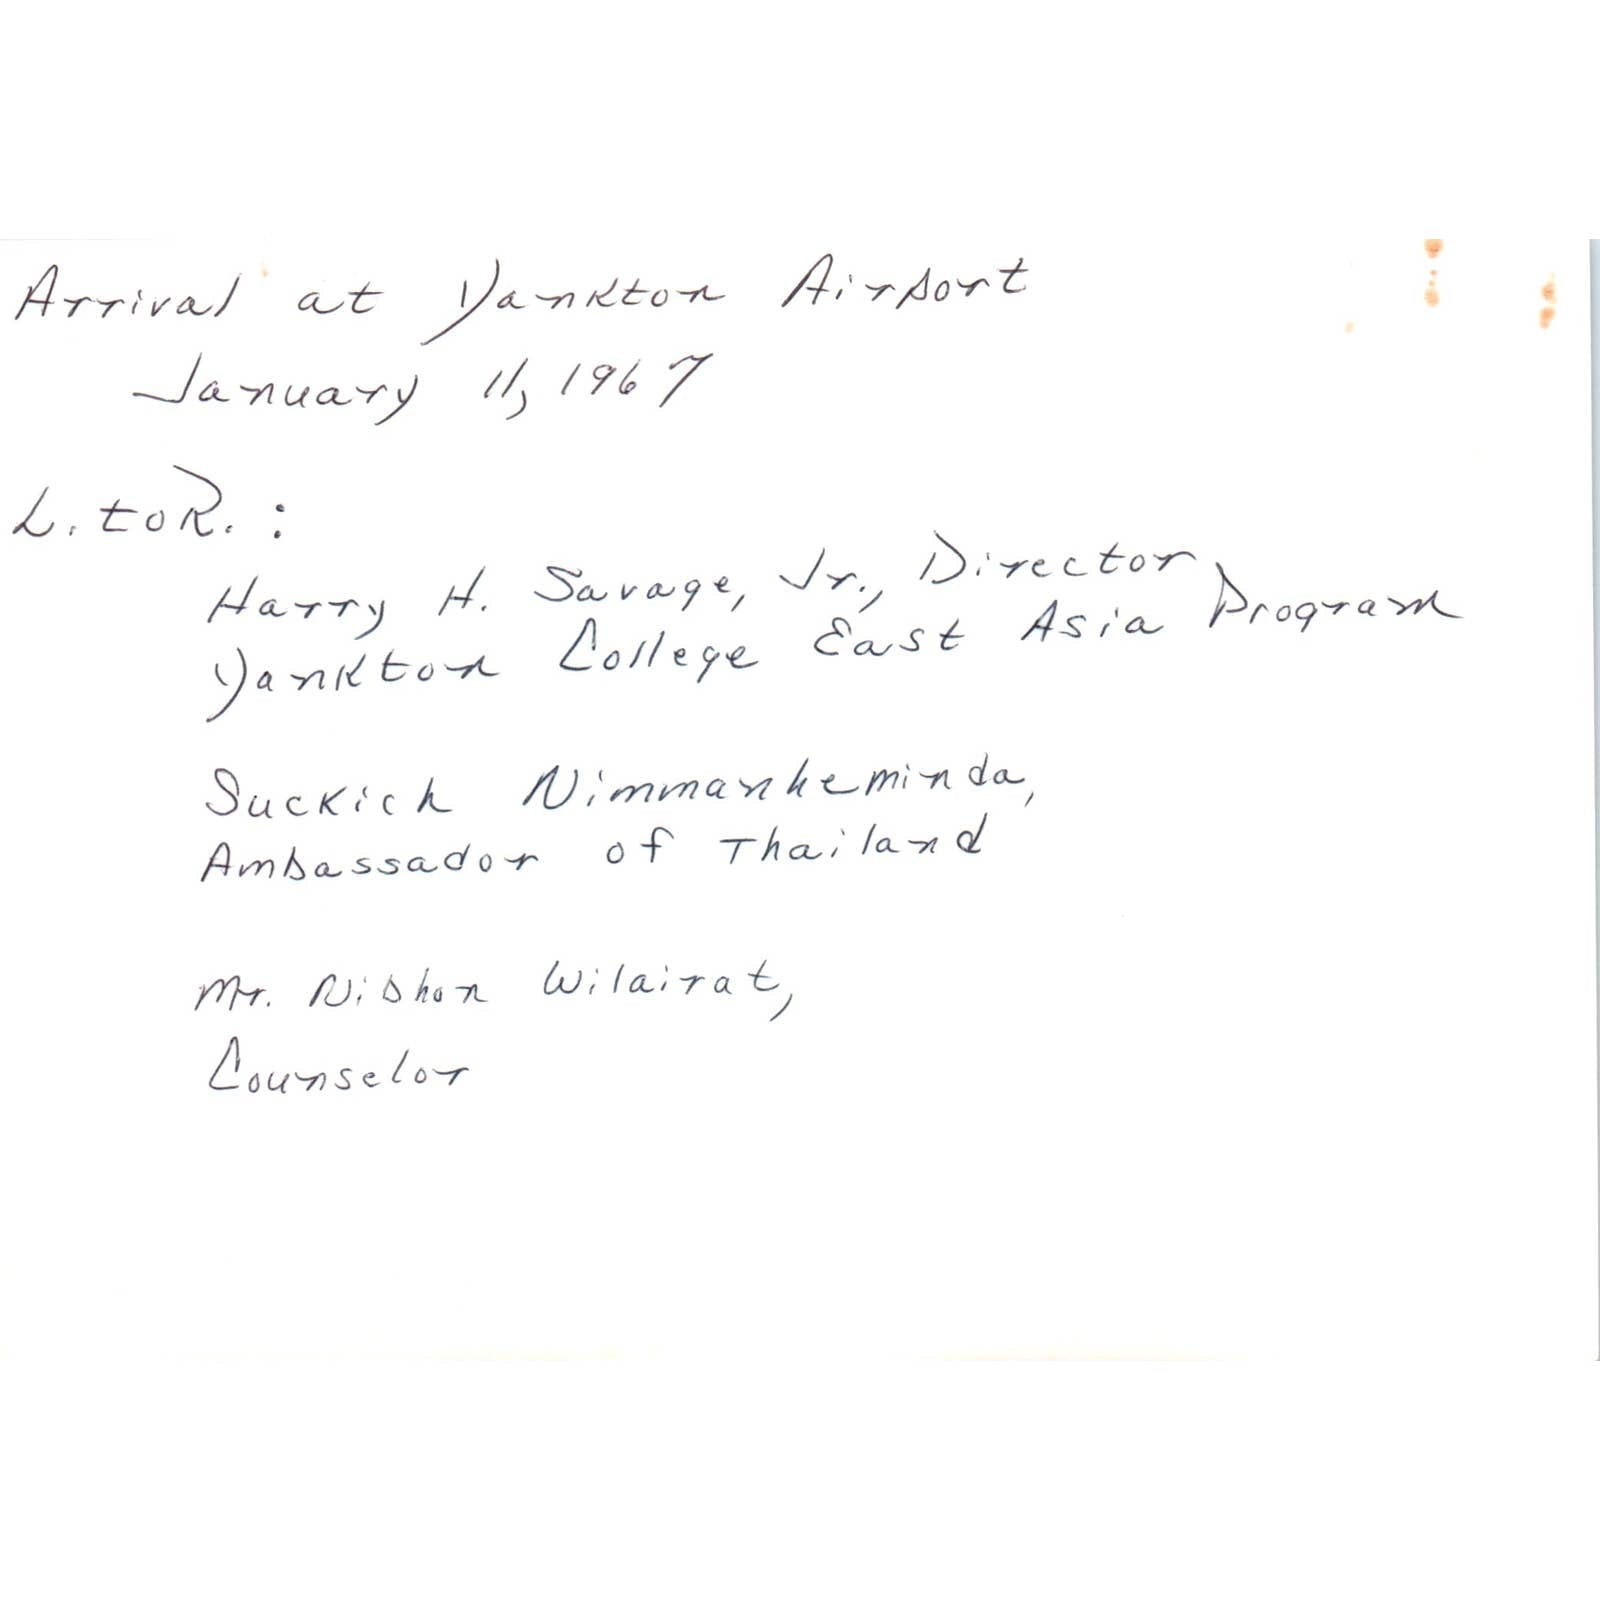 Arrival at Yankton Airport
January 11, 1967
L. to R. :
Harry H. Savage, Jr., Director,
Yankton College East Asia Program
Suckich Nimmanheminda,
Ambassador of Thailand
Mr. Nibhon Wilairat,
Counselor